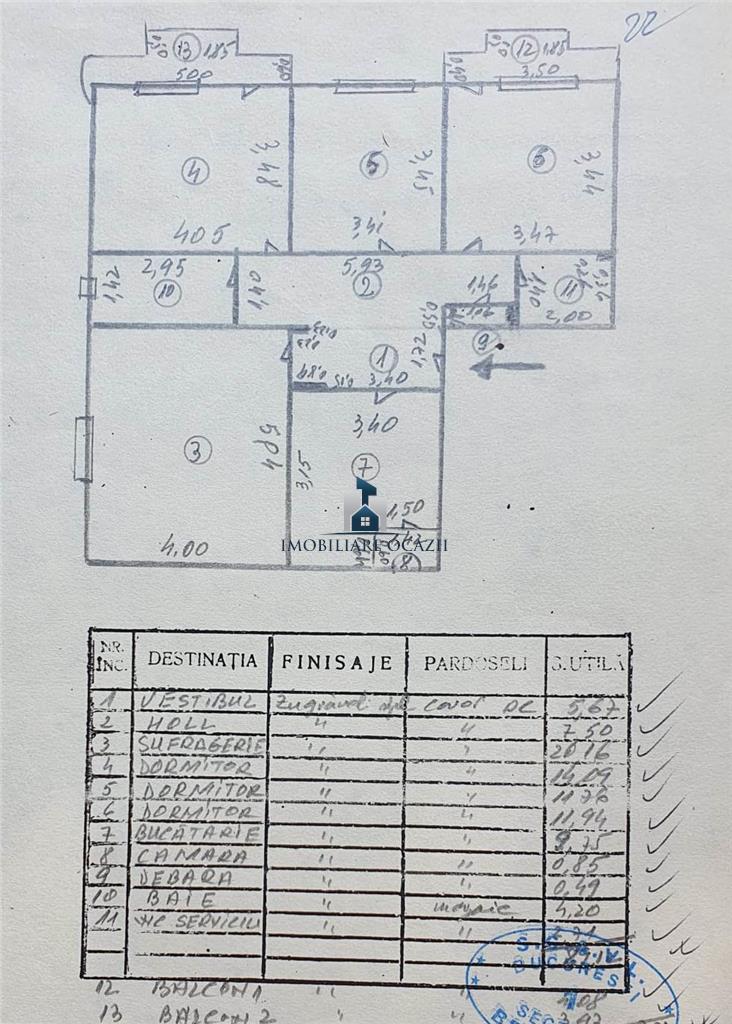 22
13 1,85
12 1,85
500
0,60
0,40
3,50
4
3,48
5
3,45
6
3,44
405
3,41
3,47
1,42
2,95
10
1,40
5,93
2
1,46
1,06
1,40
11
0,36
2,00
0,50
9
1
1,72
3,40
3
504
4,00
3,40
3,15
7
1,50
8
IMOBILIARE OCAZII
NR. INC. DESTINAȚIA FINISAJE PARDOSELI S.UTILĂ
1 VESTIBUL Zugraveli covor PVC 5,67
2 HOLL " " 7,50
3 SUFRAGERIE " " 20,16
4 DORMITOR " " 14,09
5 DORMITOR " " 11,76
6 DORMITOR " " 11,94
7 BUCĂTARIE " 9,75
8 CAMARA " " 0,85
9 DEBARA " " 0,49
10 BAIE " mozaic 4,20
11 WC SERVICIU " "
12 BALCON 1 " "
13 BALCON 2 " "